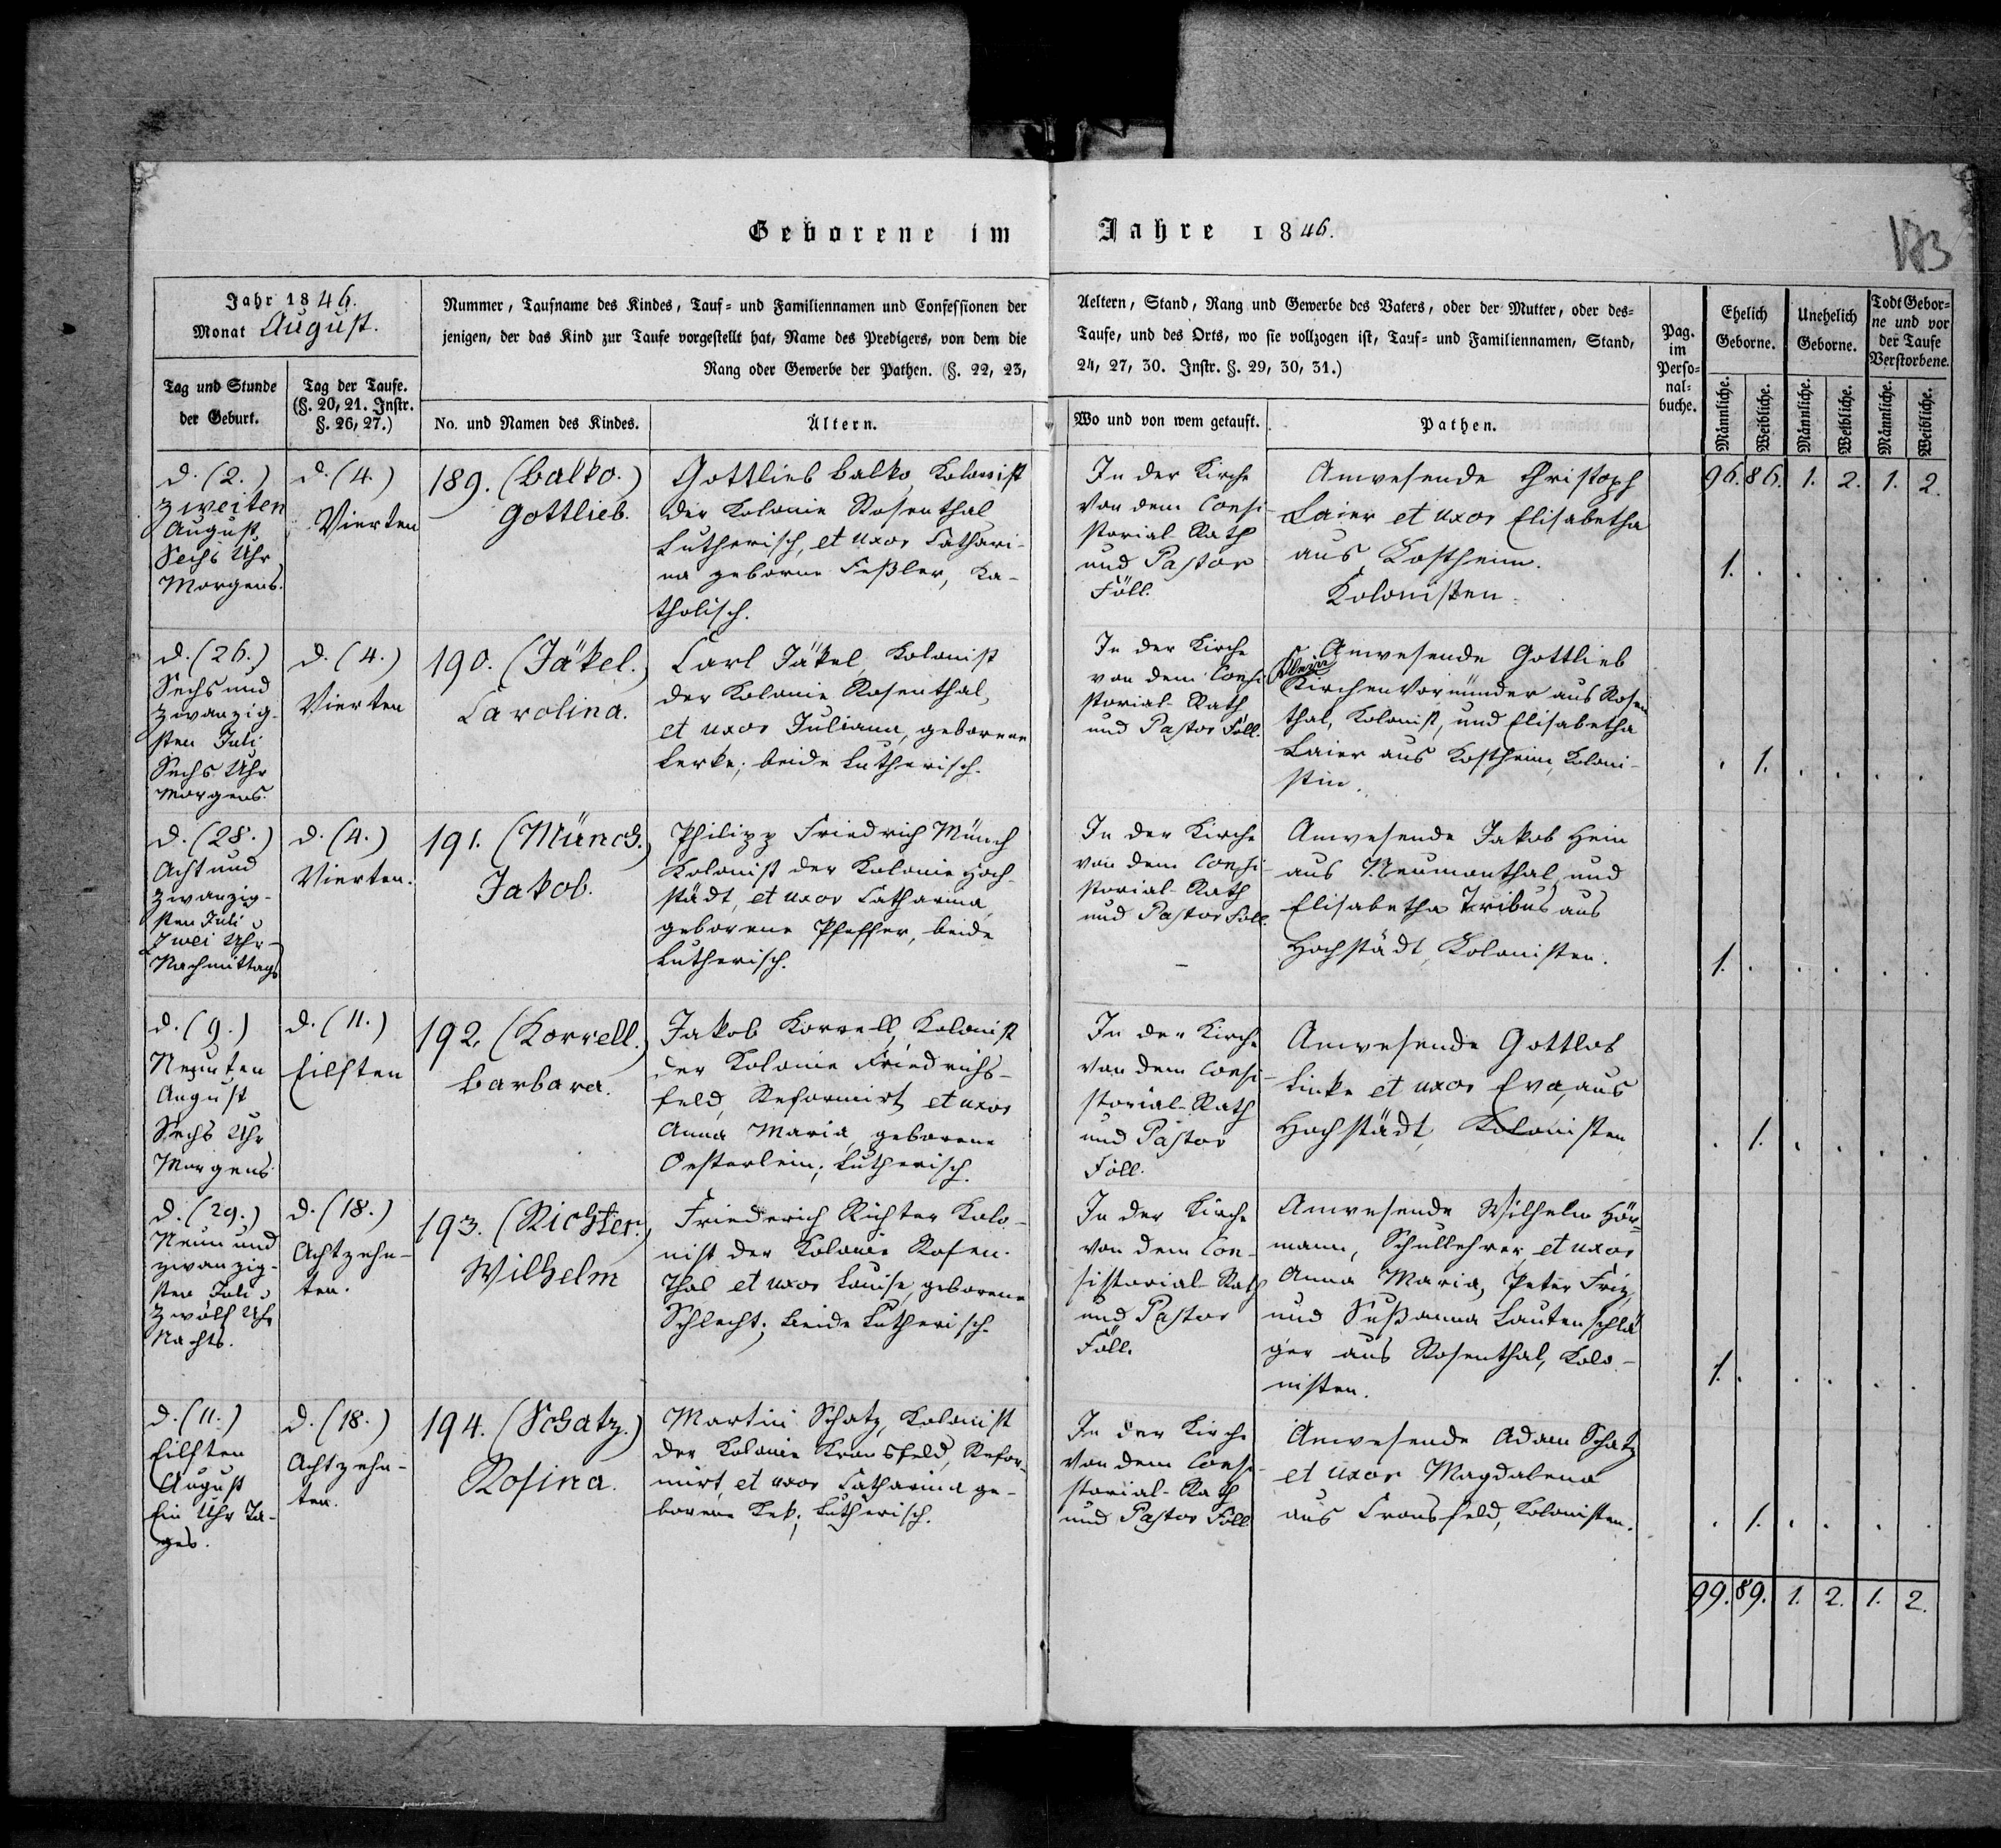 Geborene im Jahre 1846.
183
Jahr 1846.
Monat August.
Nummer, Taufname des Kindes, Tauf- und Familiennamen und Confessionen der
jenigen, der das Kind zur Taufe vorgestellt hat, Name des Predigers, von dem die
Rang oder Gewerbe der Pathen. (§. 22, 23,
Aeltern, Stand, Rang und Gewerbe des Vaters, oder der Mutter, oder des-
Taufe, und des Orts, wo sie vollzogen ist, Tauf- und Familiennamen, Stand,
24, 27, 30. Instr. §. 29, 30, 31.)
Pag.
im
Perso-
nal-
buche.
Ehelich
Geborne.
Unehelich
Geborne.
Todt Gebor-
ne und vor
der Taufe
Verstorbene.
Tag und Stunde
der Geburt.
Tag der Taufe.
(§. 20, 21. Instr.
§. 26, 27.)
No. und Namen des Kindes.
Ältern.
Wo und von wem getauft.
Pathen.
Männliche.
Weibliche.
Männliche.
Weibliche.
Männliche.
Weibliche.
96. 86. 1. 2. 1. 2.
d. (2.)
Zweiten
August
Sechs Uhr
Morgens.
d. (4.)
Vierten
189. (Balko.)
Gottlieb.
Gottlieb Balko, Kolonist
der Kolonie Rosenthal
Lutherisch, et uxor Cathari-
na geborne Feßler, Ka-
tholisch.
In der Kirche
von dem Consi-
storial-Rath
und Pastor
Föll.
Anwesende Christoph
Laier et uxor Elisabetha
aus Kostheim.
Kolonisten.
1. . . . . .
d. (26.)
Sechs und
zwanzig-
sten Juli
Sechs Uhr
Morgens.
d. (4.)
Vierten
190. (Jäkel.)
Carolina.
Carl Jäkel, Kolonist
der Kolonie Rosenthal,
et uxor Juliana, geborene
Lerke; beide Lutherisch.
In der Kirche
von dem Consi-
storial-Rath
und Pastor Föll.
Anwesende Gottlieb
Klein
Kirchenvormünder aus Rosen
thal, Kolonist, und Elisabetha
Laier aus Kostheim, Koloni-
stin.
. 1. . . . .
d. (28.)
Acht und
zwanzig-
sten Juli
Zwei Uhr
Nachmittags
d. (4.)
Vierten.
191. (Münch.)
Jakob.
Philipp Friedrich Münch
Kolonist der Kolonie Hoch-
städt, et uxor Catharina,
geborene Pfeffer, beide
Lutherisch.
In der Kirche
von dem Consi-
storial-Rath
und Pastor Föll.
Anwesende Jakob Hein
aus Neumonthal und
Elisabetha Tribus aus
Hochstädt, Kolonisten.
1. . . . . .
d. (9.)
Neunten
August
Sechs Uhr
Morgens.
d. (11.)
Eilften
192. (Korrell.)
Barbara.
Jakob Korrell, Kolonist
der Kolonie Friedrichs-
feld, Reformirt, et uxor
Anna Maria, geborene
Oesterlein; Lutherisch.
In der Kirche
von dem Consi-
storial-Rath
und Pastor
Föll.
Anwesende Gottlob
Linke et uxor Eva, aus
Hochstädt, Kolonisten
. 1. . . . .
d. (29.)
Neun und
zwanzig-
sten Juli
Zwölf Uhr
Nachts.
d. (18.)
Achtzehn-
ten.
193. (Richter.)
Wilhelm
Friederich Richter Kolo-
nist der Kolonie Rosen-
thal et uxor Louise geborene
Schlecht; beide Lutherisch.
In der Kirche
von dem Con-
sistorial-Rath
und Pastor
Föll.
Anwesende Wilhelm Hör-
mann, Schullehrer et uxor
Anna Maria, Peter Friz,
und Sußanna Lautenschlä
ger aus Rosenthal, Kolo-
nisten.
1. . . . . .
d. (11.)
Eilften
August
Ein Uhr Ta-
ges.
d. (18.)
Achtzehn-
ten.
194. (Schatz.)
Rosina.
Martin Schatz, Kolonist
der Kolonie Kronsfeld, Refor-
mirt, et uxor Catharina ge-
borene Keck; Lutherisch.
In der Kirche
von dem Consi-
storial-Rath
und Pastor Föll
Anwesende Adam Schatz
et uxor Magdalena
aus Cronsfeld, Kolonisten.
. 1. . . . .
99. 89. 1. 2. 1. 2.